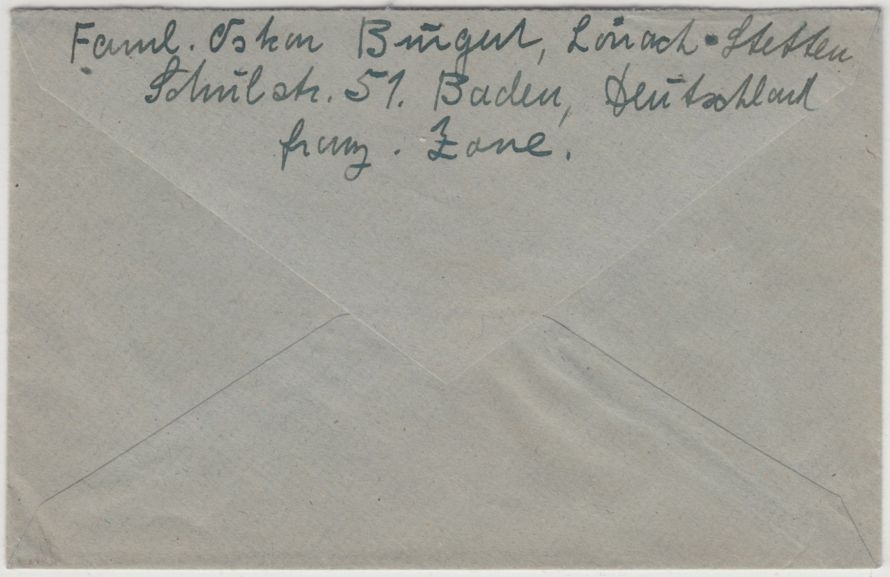 Faml. Oskar Burgert, Lörrach-Stetten
Schulstr. 51. Baden, Deutschland
franz. Zone.